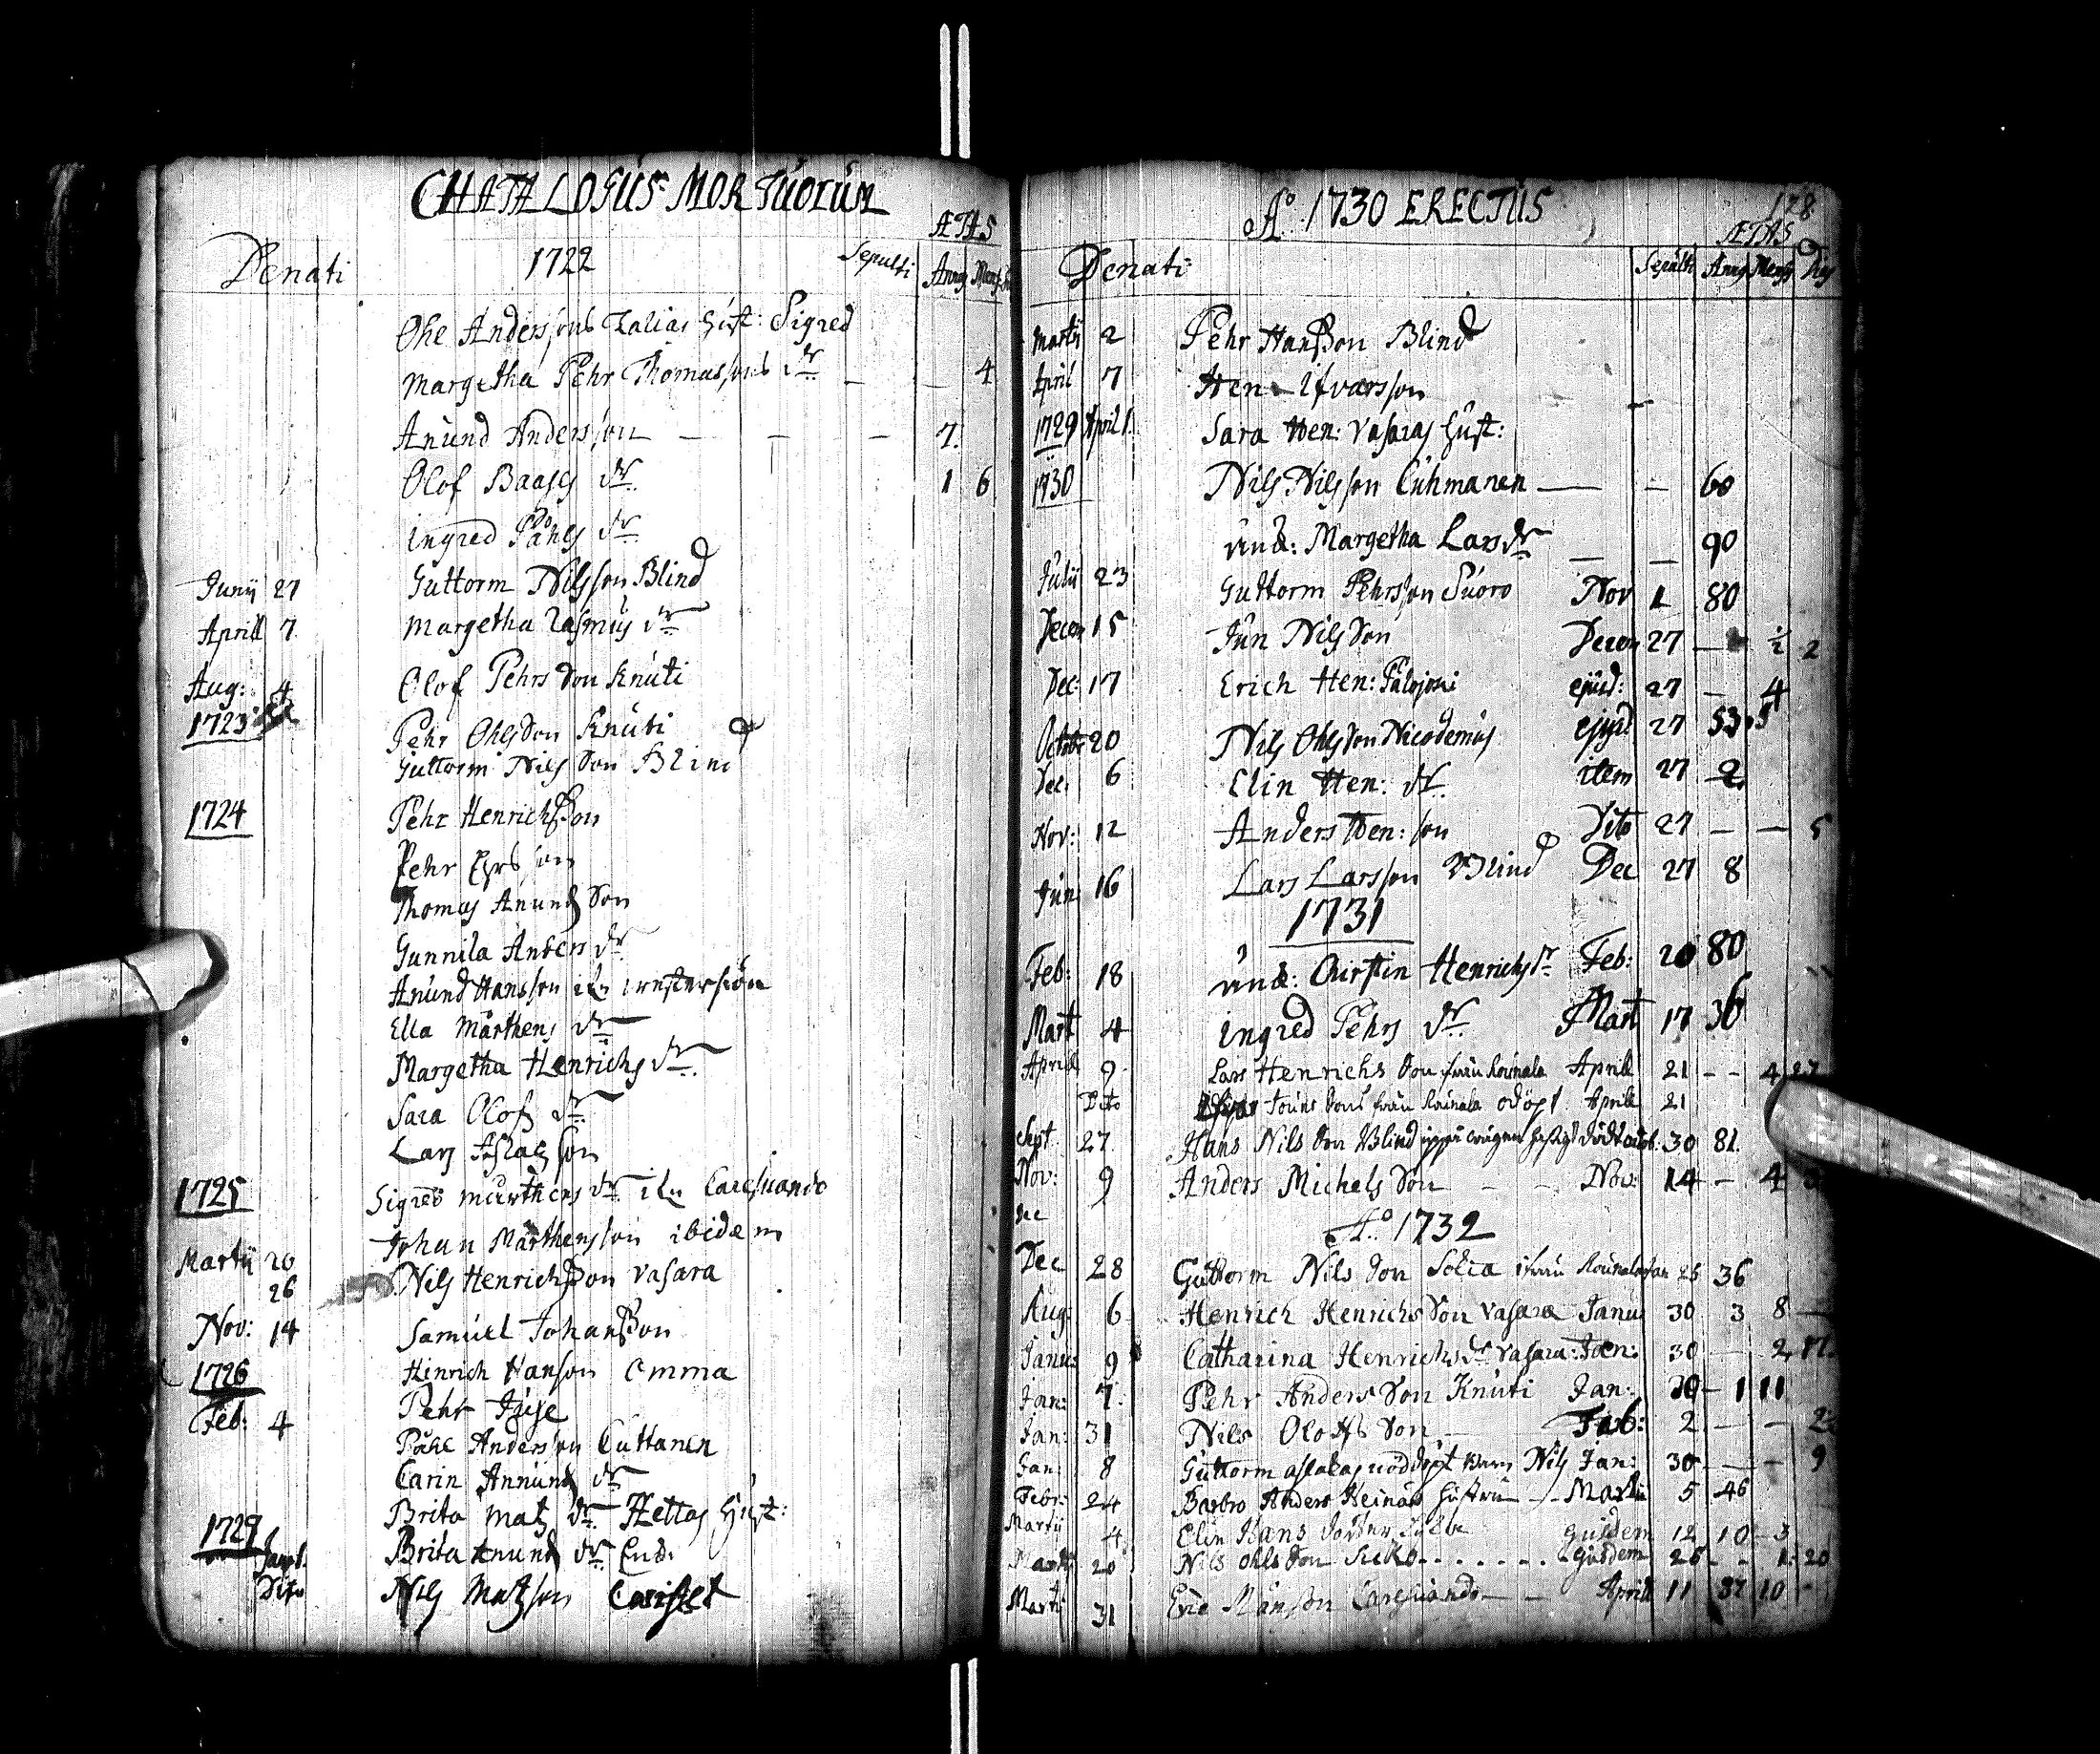 CHATALOGUS MORTUORUM
ÆTAS
Denati 1722 Sepulti Anny Mens
Ohe Anderssons Zalias Hust: Sigred
Margetha Pehr Thomassons dr — — 4
Anund Andersson — — — 7.
Olof Baasy dr 1 6
Ingred Påhls dr
Junij 27 Guttorm Nilsson Blind
Aprill 7 Margetha Rasmus dr
Aug: 4 Olof Pehrs Son Knuti
1723 Pehr Ohls Son Knuti
Guttorm Nils Son Blind
1724 Pehr Henrichsson
Pehr
Thomas Anunds Son
Gunnila Anders dr
Anund Hansson
Ella Mårthens dr
Margetha Henrichs dr
Sara Olofs dr
Lars Aslachson
1725 Sigred Mårthens dr Caresuando
Johan Mårthensson ibidem
Martij 20
26 Nils Henrichsson Vasara
Nov: 14 Samuel Johansson
1726 Hinrich Hanson Omma
Feb: 4 Pehr
Påhl Andersson Cuttanen
Carin Annunds dr
Brita Mats dr Hettas Hust:
1729 Brita Anunds dr
Dito Nils Matsson
Ao 1730 ERECTUS
128
ÆTAS
Denati Sepulti Anny Mensy Dies
Martij 2 Pehr Hansson Blind
April 7 Hen. Ifvarsson
1729 April 1. Sara Hen: Vasaras Hust:
1730 Nils Nilsson Cuhmanen — — 60
Änk: Margetha Lars dr — — 90
Julij 23 Guttorm Pehrsson Suoro Nov 1 80
Decem 15 Jun Nils Son Decem 27 — ½ 2
Dec: 17 Erich Hen: Palojoki ejusd: 27 — 4
Octobr 20 Nils Ohls Son Nicodemus ejusd 27 53
Dec. 6 Elin Hen: dr item 27 2
Nov: 12 Anders Hen: son Dito 27 — — 5
Jun 16 Lars Larsson Blind Dec 27 8
1731
Feb: 18 Änk: Chirstin Henrichs dr Feb: 20 80
Mart 4 Ingred Pehrs dr Mart 17 36
Aprill 9 Lars Henrichs Son från Rounala Aprill 21 - - 4 27
Dito från Rounala odöpt Aprill 21
Sept 27. Hans Nils Son Blind 30 81.
Nov: 9 Anders Michels Son — — Nov: 14 — 4
Dec
Ao 1732
Dec 28 Guttorm Nils Son ifrån Rounala 25 36
Aug: 6 Henrich Henrichs Son Vasara Janu: 30 3 8 —
Janu: 9 Catharina Henrichs dr Vasara Jan: 30 — 2 17.
Jan: 7. Pehr Anders Son Knuti Jan: 30 — 1 11
Jan: 31 Nils Oloffs Son — Feb: 2 — —
Jan: 8 Guttorm Barn Nils Jan: 30 — — 9
Febr: 24 Barbro Anders Heinas hustru — Martii 5 46
Martij 4. Elin Hans dotter Ejusdem 12 10 3
Martij 20 Nils Ohls Son . . . . . . . Ejusdem 26 - - 1 20
Martij 31 Eric Månsson Caresuando — — Aprill 11 82 10